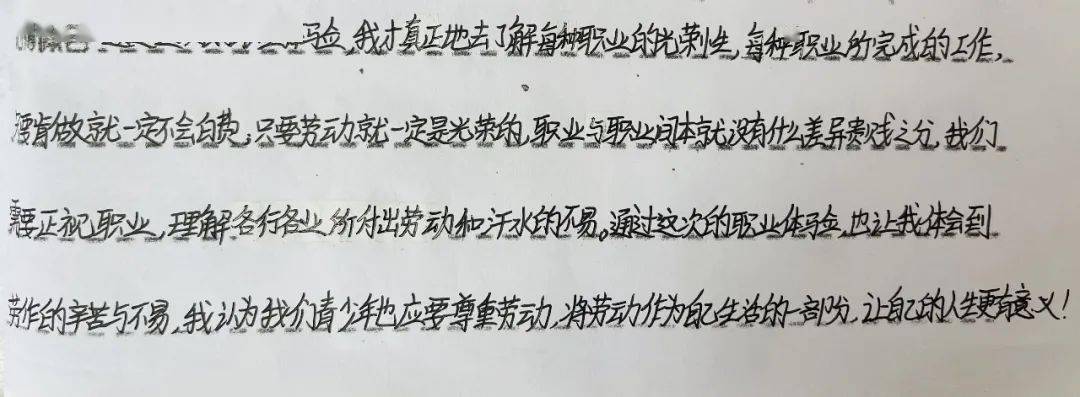 验,我才真正地去了解每种职业的光荣性,每种职业所完成的工作,
要肯做就一定不会白费,只要劳动就一定是光荣的,职业与职业间本就没有什么差异贵贱之分,我们
需要正视职业,理解各行各业所付出劳动和汗水的不易。通过这次的职业体验,也让我体会到
劳作的辛苦与不易,我认为我们青少年也应要尊重劳动,将劳动作为自己生活的一部分,让自己的人生更有意义!